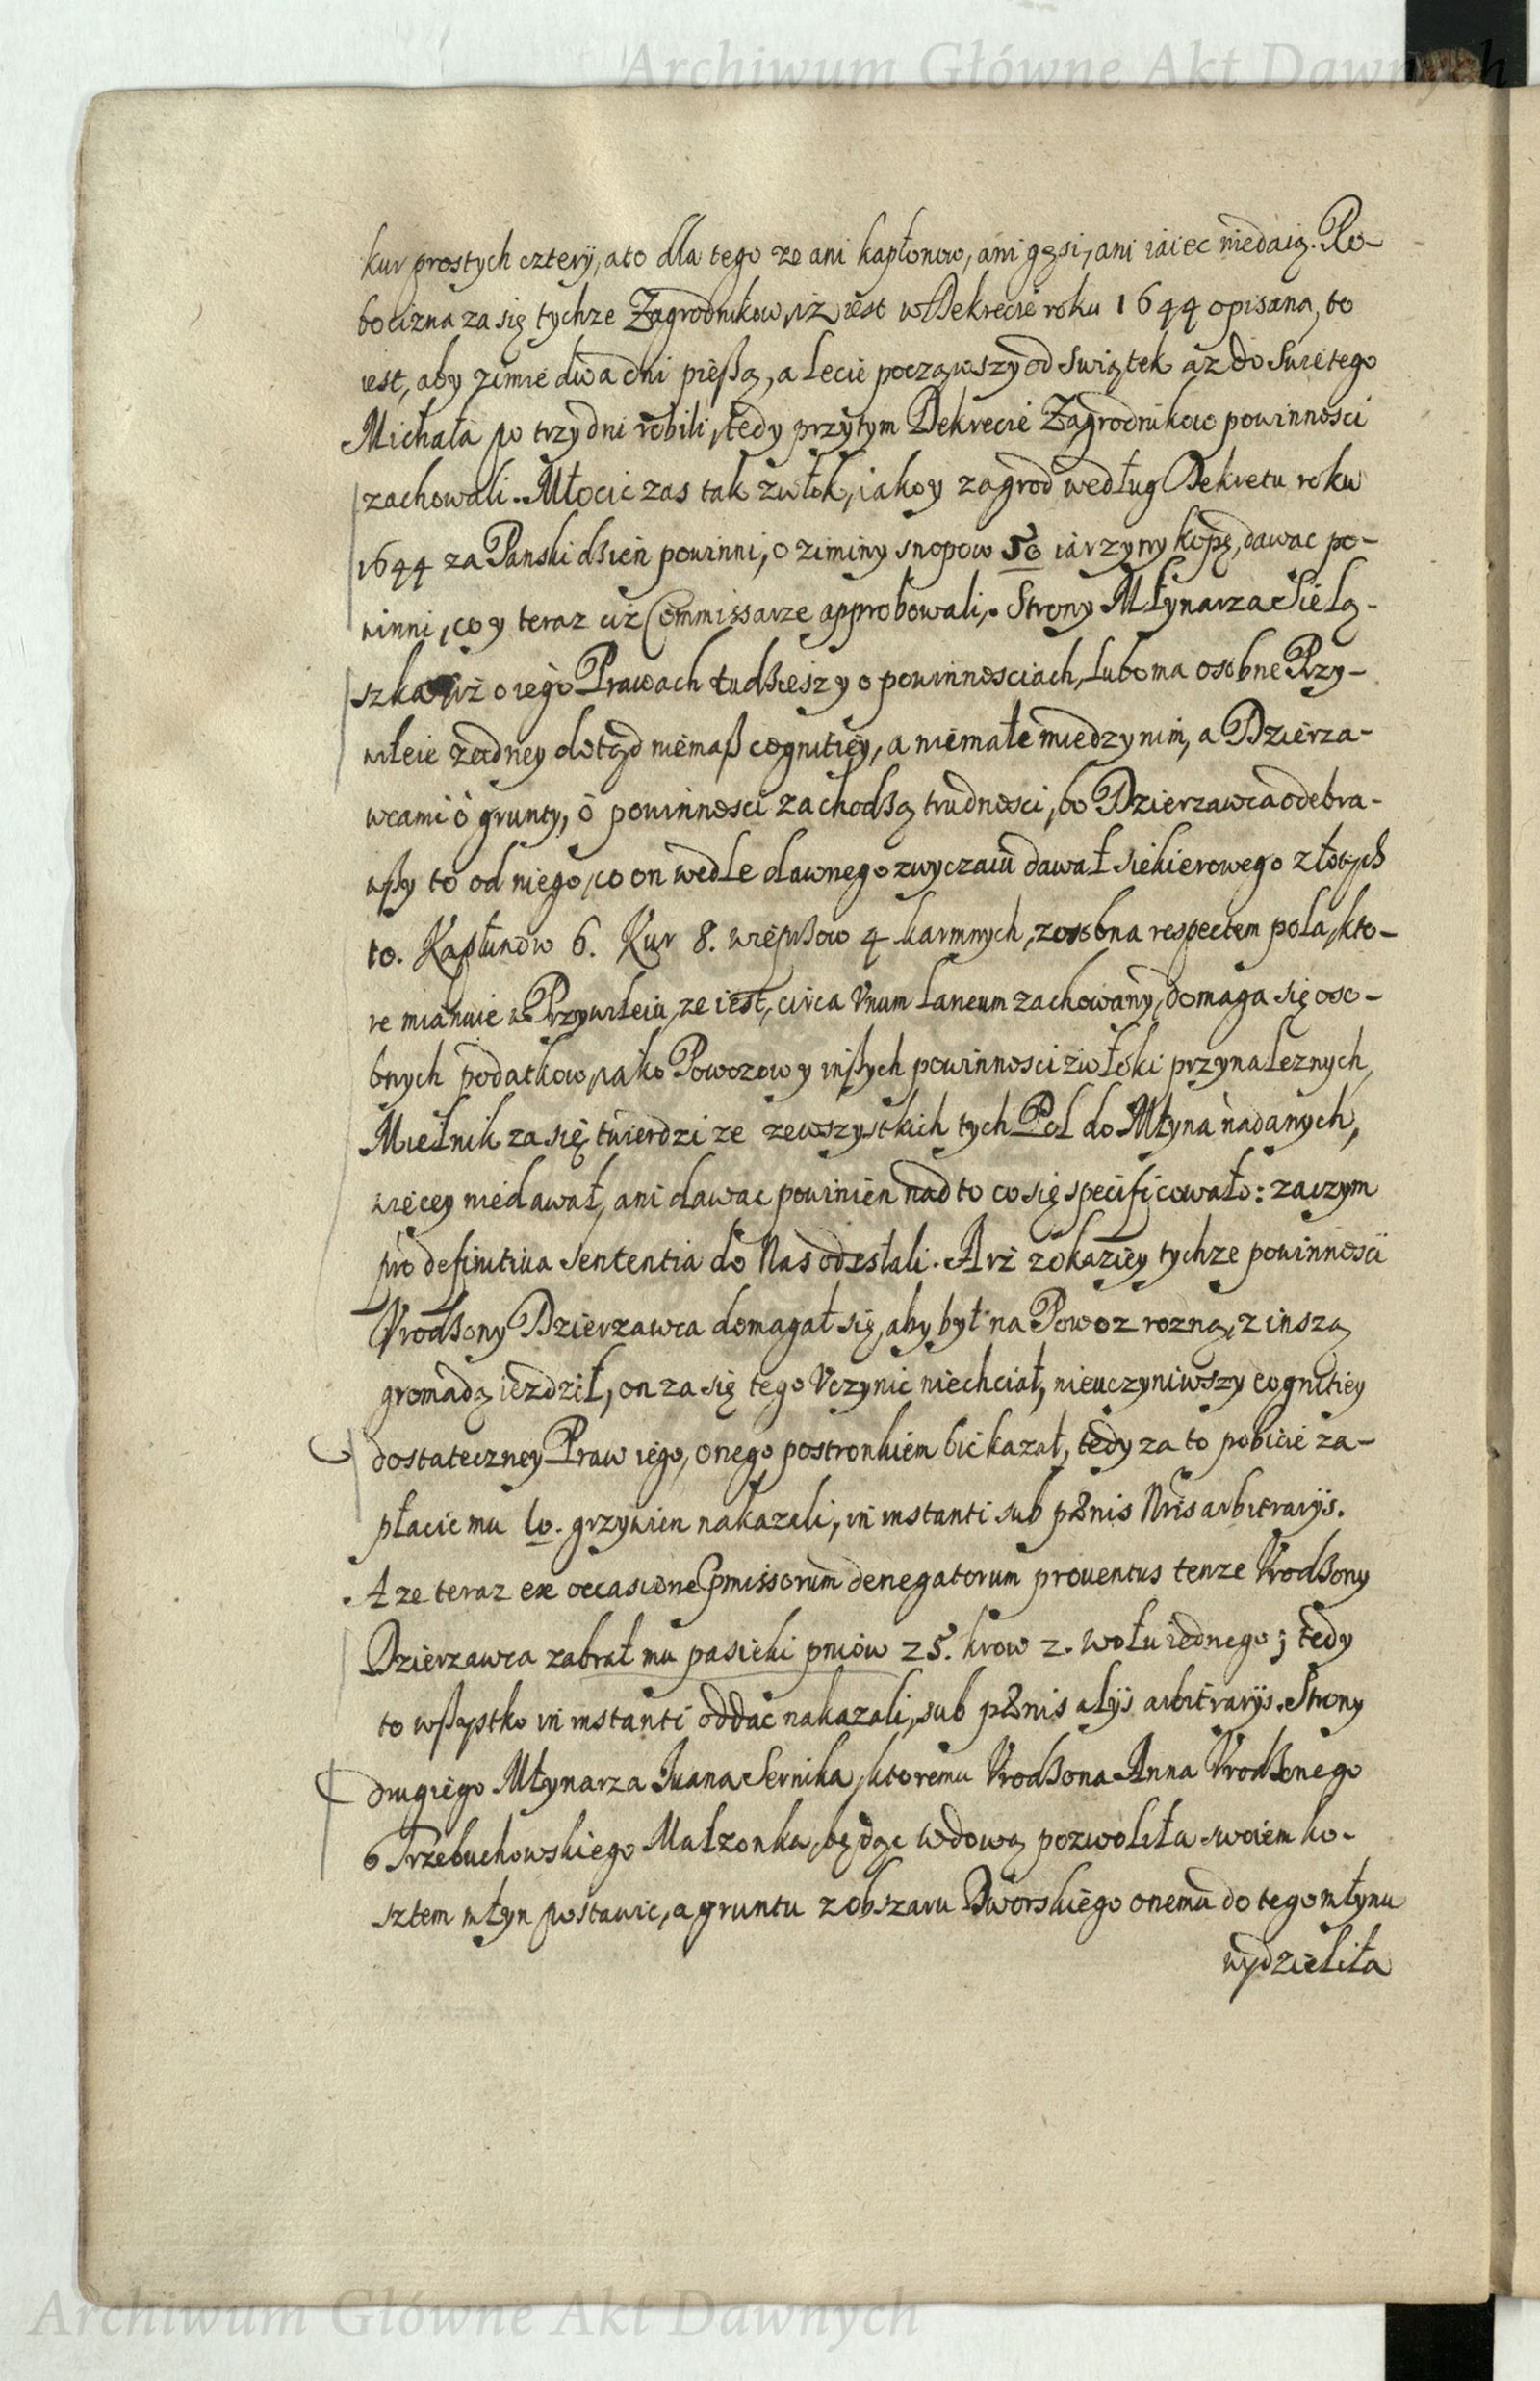 Archiwum Główne Akt Dawnych
kur prostych cztery, a to dla tego ze ani kapłonow, ani gęsi, ani iaiec niedaią. Ro-
bocizna za się tychze Zagrodnikow, iz iest w Dekrecie roku 1644 opisana, to
iest, aby zimie dwa dni pießą, a lecie począwszy od Swiątek az do Swietego
Michała po trzy dni robili, tedy przytym Dekrecie Zagrodnikow powinnosci
zachowali. Młocic zas tak z włok, iako y zagrod według Dekretu roku
1644 za Panski dzien powinni, oziminy snopow 50 iarzyny kopę, dawac po-
winni, co y teraz ciz Commissarze approbowali. Strony Młynarza Sielą-
szka iz o iego Prawach tudzieszy o powinnosciach, lubo ma osobne Przy-
wileie zadney dotąd niemaß cognitiey, a niemałe miedzy nim, a Dzierza-
wcami o grunty, o powinnosci zachodzą trudnosci, bo Dzierzawca odebra-
wßy to od niego, co on wedle dawnego zwyczaiu dawał siekierowego złotych
10. Kapłunow 6. Kur 8. wieprzow 4 karmnych, zosobna respectem pola, kto-
re mianuie w Przywileiu, ze iest, circa Vnum Laneum zachowany, domaga się oso-
bnych podatkow, iako Powozow y inßych powinnosci z włoki przynaleznych,
Mielnik za się twierdzi ze ze wszystkich tych Pol do Młyna nadanych,
więcey niedawał, ani dawac powinien nad to co się specificowało: zaczym
pro definitiua sententia do Nas odesłali. A iz z okaziey tychze powinnosci
Vrodzony Dzierzawca domagał się, aby był na Powoz rozną, z inszą
gromadą iezdził, on za się tego Vczynic niechciał, nieuczyniwszy cognitiey
dostateczney Praw iego, onego postronkiem bic kazał, tedy za to pobicie za-
płacic mu 10. grzywien nakazali, in instanti sub pænis Nris arbitrarijs.
A ze teraz ex occasione Pmissorum denegatorum prouentus tenze Vrodzony
Dzierzawca zabrał mu pasieki pniow 25. krow 2. wołu iednego; tedy
to wßystko in instanti oddac nakazali, sub pænis alijs arbitrarijs. Strony
drugiego Młynarza Iwana Sernika, ktoremu Vrodzona Anna Vrodzonego
Trzebuchowskiego Małzonka, będąc wdową pozwoliła swoiem ko-
sztem młyn postawic, a gruntu z obszaru Dworskiego onemu do tego młynu
wydzieliła
Archiwum Główne Akt Dawnych